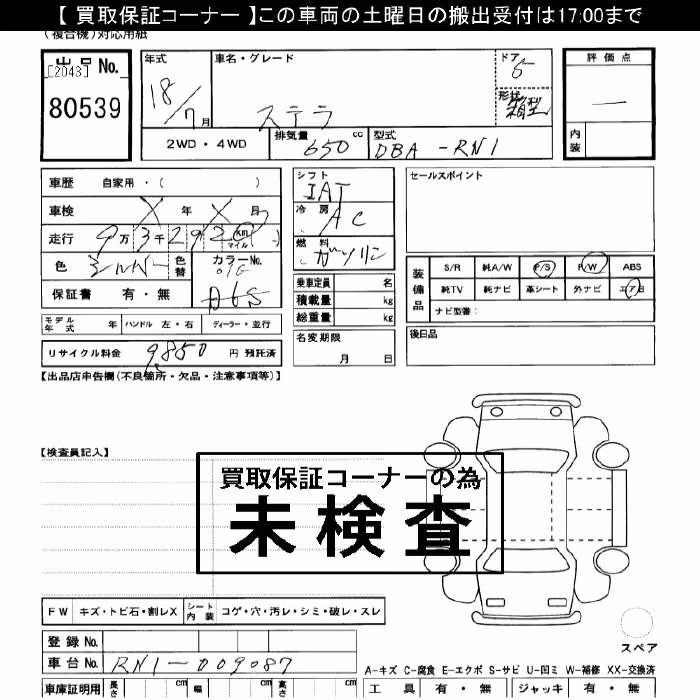 【 買取保証コーナー 】この車両の土曜日の搬出受付は17:00まで
(複合機)対応用紙
出品 No.
[2043]
80539
年式
18/7月
車名・グレード
ステラ
ドア
5
形状
箱型
評価点
—
内装
2WD・4WD
排気量 650 cc
型式 DBA-RN1
車歴 自家用・( )
車検 X 年 X 月
走行 9万3千292 km マイル
色 シルバー 色替
カラーNo. D6S
保証書 有・無
モデル年式 年 ハンドル 左・右 ディーラー・並行
リサイクル料金 9,850 円 預託済
シフト
IAT
冷房
AC
燃料
ガソリン
乗車定員 名
積載量 kg
総重量 kg
名変期限
月 日
セールスポイント
装備品
S/R 純A/W P/S P/W ABS
純TV 純ナビ 革シート 外ナビ エアB
ナビ型番:
後日品
【出品店申告欄(不良箇所・欠品・注意事項等)】
【検査員記入】
買取保証コーナーの為
未検査
FW キズ・トビ石・割レX シート内装 コゲ・穴・汚レ・シミ・破レ・スレ
スペア
登録 No.
車台 No. RN1-009087
車庫証明用 長さ cm 幅 cm 高さ cm
A-キズ C-腐食 E-エクボ S-サビ U-凹ミ W-補修 XX-交換済
工具 有・無 ジャッキ 有・無